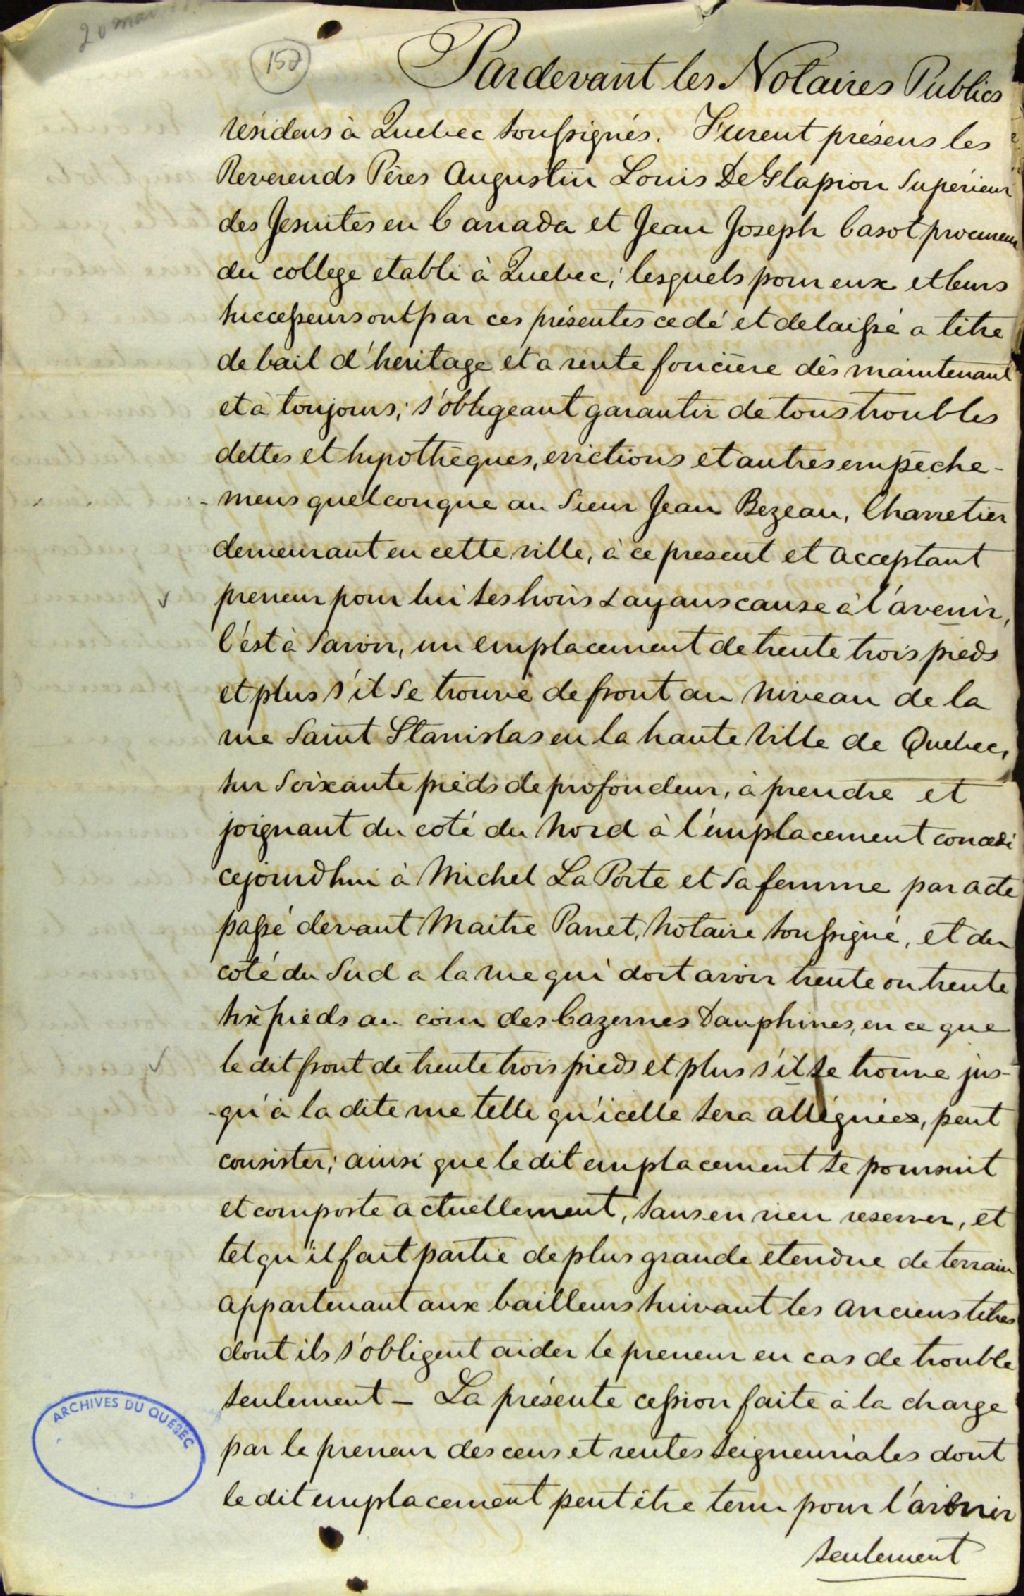 20 mai
157
Pardevant les Notaires Publics
résidens à Quebec soussignés. Furent présens les
Reverends Pères Augustin Louis De Glapion Supérieur
des Jesuites en Canada et Jean Joseph Casot procureur
du college etabli à Quebec; lesquels pour eux et leurs
successeurs ont par ces présentes cedé et delaissé a titre
de bail d'heritage et a rente foncière dès maintenant
et à toujours; s'obligeant garantir de tous troubles
dettes et hypothèques, evictions et autres empêche-
-mens quelconque au Sieur Jean Bezeau, Charretier
demeurant en cette ville, à ce present et acceptant
preneur pour lui ses hoirs & ayans cause à l'avenir,
C'est à Savoir, un emplacement de trente trois pieds
et plus s'il se trouve de front au niveau de la
rue Saint Stanislas en la haute Ville de Quebec,
sur soixante pieds de profondeur, à prendre et
joignant du coté du Nord à l'emplacement concedé
cejourdhui à Michel La Porte et sa femme par acte
passé devant Maitre Panet, Notaire soussigné, et du
coté du Sud a la rue qui doit avoir trente ou trente
six pieds au coin des Cazernes Dauphines, en ce que
le dit front de trente trois pieds et plus s'il se trouve jus-
-qu'à la dite rue telle qu'icelle sera allignée, peut
consister; ainsi que le dit emplacement se poursuit
et comporte actuellement, sans en rien reserver, et
tel qu'il fait partie de plus grande etendue de terrain
appartenant aux bailleurs suivant les anciens titres
dont ils s'obligent aider le preneur en cas de trouble
seulement – La présente cession faite à la charge
par le preneur des cens et rentes seigneuriales dont
le dit emplacement peut être tenu pour l'avenir
seulement
ARCHIVES DU QUÉBEC